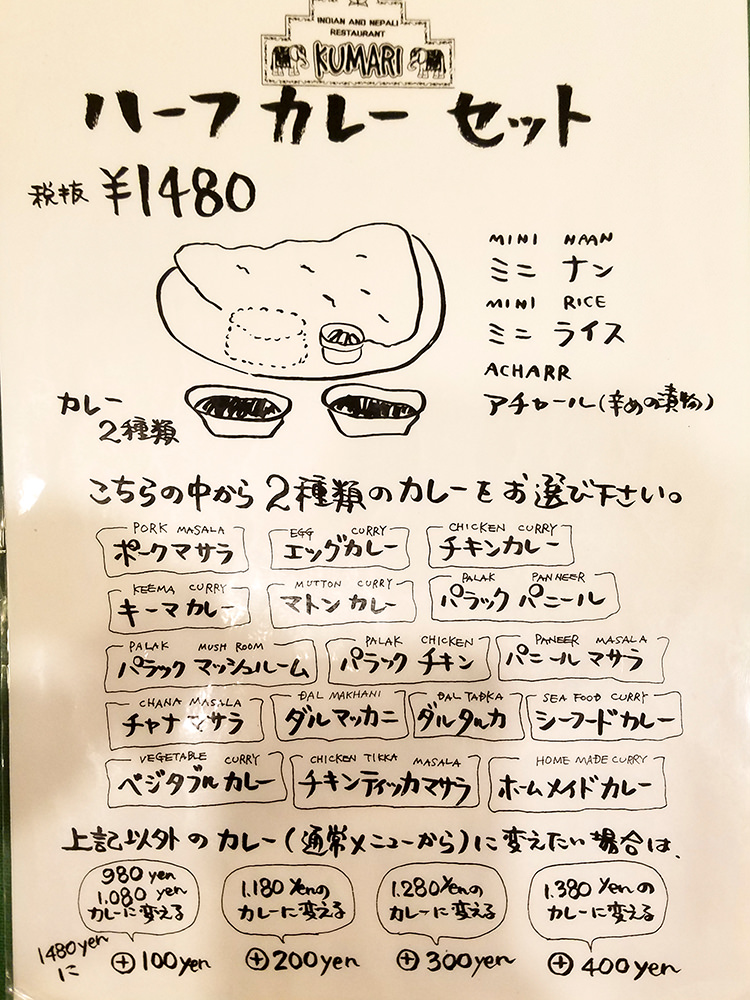 INDIAN AND NEPALI
RESTAURANT
KUMARI
ハーフ カレー セット
税抜 ¥1480
MINI NAAN
ミニ ナン
MINI RICE
ミニ ライス
ACHARR
アチャール(辛めの漬物)
カレー
2種類
こちらの中から2種類のカレーをお選び下さい。
PORK MASALA EGG CURRY CHICKEN CURRY
ポークマサラ エッグカレー チキンカレー
KEEMA CURRY MUTTON CURRY PALAK PANNEER
キーマカレー マトンカレー パラック パニール
PALAK MUSH ROOM PALAK CHICKEN PANEER MASALA
パラック マッシュルーム パラック チキン パニールマサラ
CHANA MASALA DAL MAKHANI DAL TADKA SEA FOOD CURRY
チャナマサラ ダルマッカニ ダルタルカ シーフードカレー
VEGETABLE CURRY CHICKEN TIKKA MASALA HOME MADE CURRY
ベジタブルカレー チキンティッカマサラ ホームメイドカレー
上記以外のカレー(通常メニューから)に変えたい場合は、
980 yen
1.080 yen
カレーに変える
1.180 yenの
カレーに変える
1.280 yenの
カレーに変える
1.380 yenの
カレーに変える
1480yen
に
+100yen +200yen +300yen +400yen